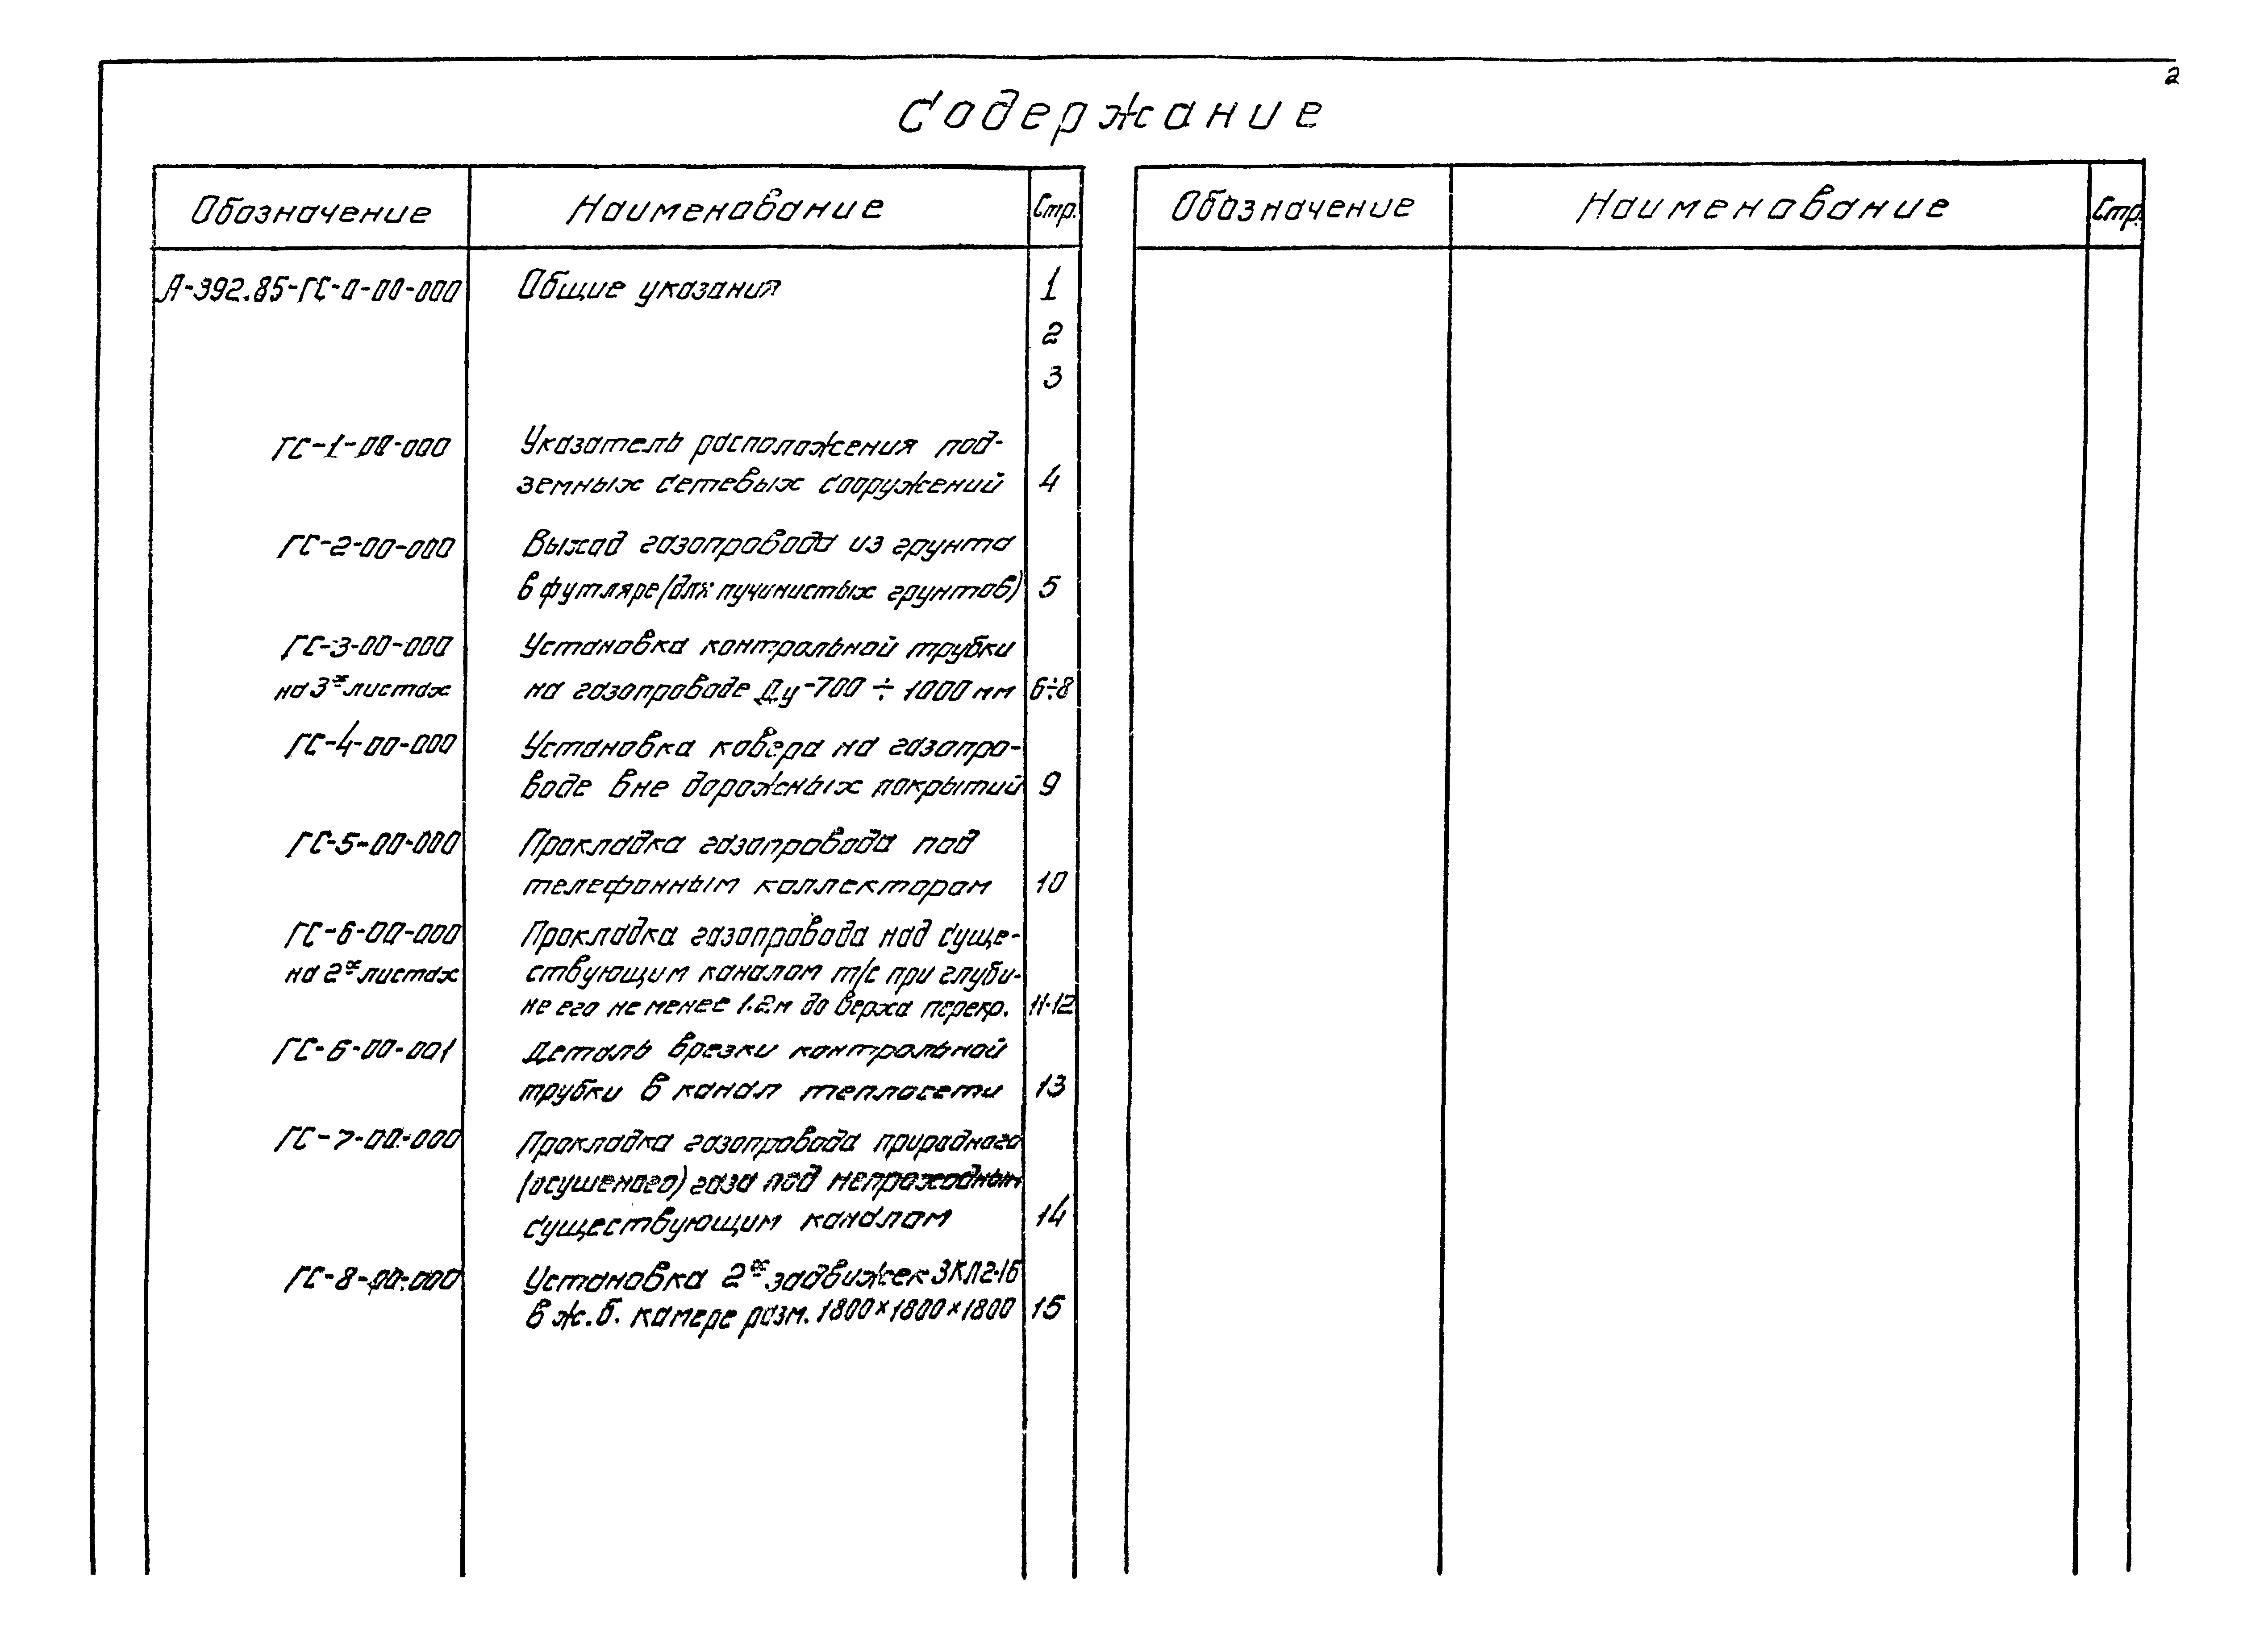 2
Содержание
Обозначение Наименование Стр.
Обозначение Наименование Стр.
А-392.85-ГС-0-00-000 Общие указания 1
2
3
ГС-1-00-000 Указатель расположения под-
земных сетевых сооружений 4
ГС-2-00-000 Выход газопровода из грунта
в футляре (для пучинистых грунтов) 5
ГС-3-00-000 Установка контрольной трубки
на 3х листах на газопроводе Ду-700 ÷ 1000 мм 6÷8
ГС-4-00-000 Установка ковера на газопро-
воде вне дорожных покрытий 9
ГС-5-00-000 Прокладка газопровода под
телефонным коллектором 10
ГС-6-00-000 Прокладка газопровода над суще-
на 2х листах ствующим каналом т/с при глуби-
не его не менее 1.2м до верха перекр. 11-12
ГС-6-00-001 Деталь врезки контрольной
трубки в канал теплосети 13
ГС-7-00-000 Прокладка газопровода природного
(осушеного) газа под непроходным
существующим каналом 14
ГС-8-00-000 Установка 2х задвижек ЗКЛ2-16
в ж.б. камере разм. 1800×1800×1800 15